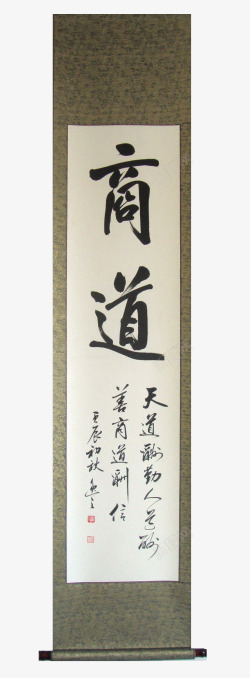 商道
天道酬勤人道酬
善商道酬信
壬辰初秋